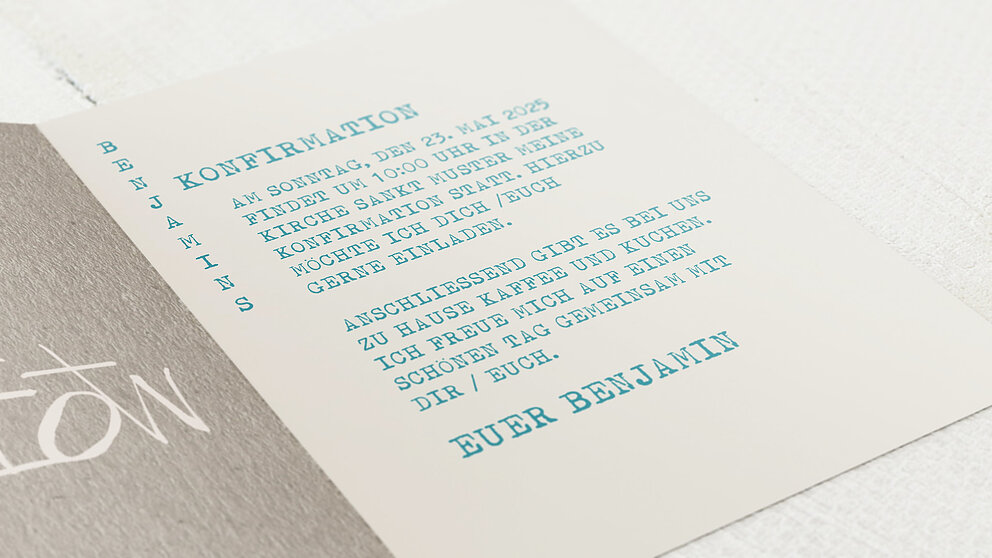 BENJAMINS
KONFIRMATION
AM SONNTAG, DEN 23. MAI 2025
FINDET UM 10:00 UHR IN DER
KIRCHE SANKT MUSTER MEINE
KONFIRMATION STATT. HIERZU
MÖCHTE ICH DICH /EUCH
GERNE EINLADEN.
ANSCHLIESSEND GIBT ES BEI UNS
ZU HAUSE KAFFEE UND KUCHEN.
ICH FREUE MICH AUF EINEN
SCHÖNEN TAG GEMEINSAM MIT
DIR / EUCH.
EUER BENJAMIN